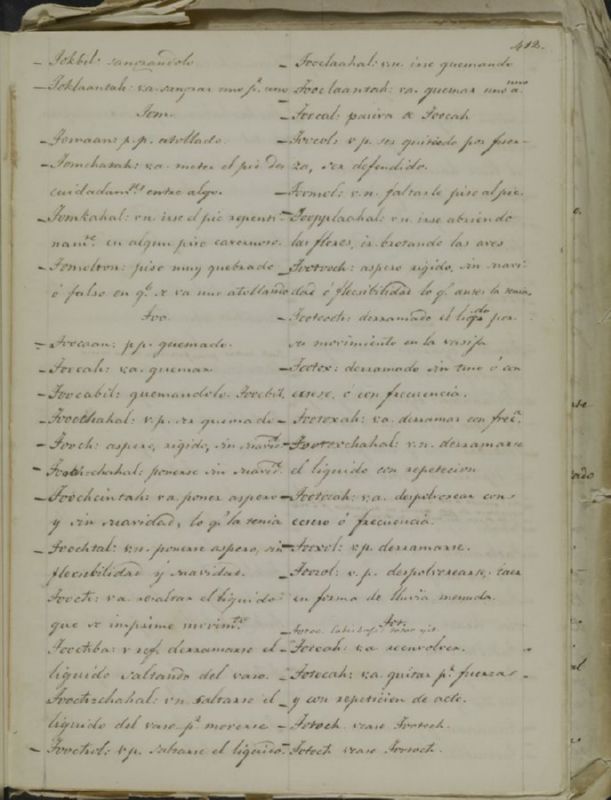 412.
Tokbil: sangrandolo
Toklaantah: v.a. sangrar uno pr. uno
Tom.
Tomaan: p.p. atollado.
Tomchatah: v.a. meter el pie des
cuidadamte. entre algo.
Tomkahal: v.n. irse el pie repenti-
namte. en algun piso cavernoso.
Tomolton: piso muy quebrado
ó falso en qe. se va uno atollando
Too.
Toocaan: p.p. quemado.
Toocah: v.a. quemar.
Toocabil: quemandolo. Toocbil.
Toocthahal: v.p. ser quemado
Tooch: aspero, rigido, sin suavid.
Toochchahal: ponerse sin suavid.
Toochcintah: v.a. poner aspero
y sin suavidad, lo qe. la tenia
Toochtal: v.n. ponerse aspero, sin
flecsibilidad y suavidad.
Toocti: v.a. resaltar el liquido
que se imprime movimto.
Tooctiba: v. ref. derramarse el
liquido saltando del vaso.
Tooctichahal: v.n. saltarse el
liquido del vaso pr. moverse
Tooctiol: v.p. saltarse el liquido.
Tooclaahal: v.n. irse quemando
Tooclaantah: v.a. quemar uno a uno
Toocal: pasiva de Toocah
Toocol: v.p. ser quitado por fuer-
za, ser defendido.
Toomol: v.n. faltarle piso al pie.
Toopplaahal: v.n. irse abriendo
las flores, ir brotando las aves
Tootooch: aspero rigido, sin suavi
dad ó flecsibilidad lo qe. antes la tenia,
Tootocti: derramado el liqdo. por
su movimiento en la vasija
Tootox: derramado sin tino ó con
ecseso, ó con frecuencia.
Tootoxah: v.a. derramar con frecª.
Tootoxchahal: v.n. derramarse
el liquido con repeticion
Tootocah: v.a. despolvorear con
ecseso ó frecuencia.
Tooxol: v.p. derramarse.
Toozol: v.p. despolvorearse, caer
en forma de lluvia menuda.
Tot.
Totcah: v.a. desenvolver.
Totocah: v.a. quitar pr. fuerza
y con repeticion de acto.
Totoch vease Tootoch.
Totocti vease Tootocti.